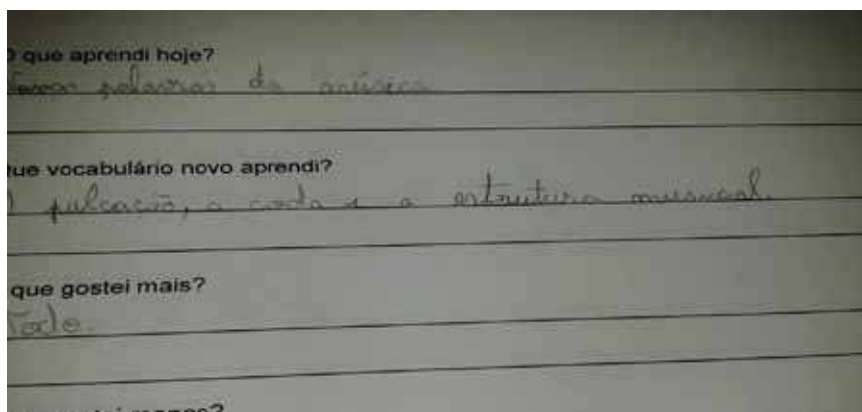 O que aprendi hoje?
Novas palavras da música.
que vocabulário novo aprendi?
A pulcação, a corda e a estrutura musical.
que gostei mais?
Tode.